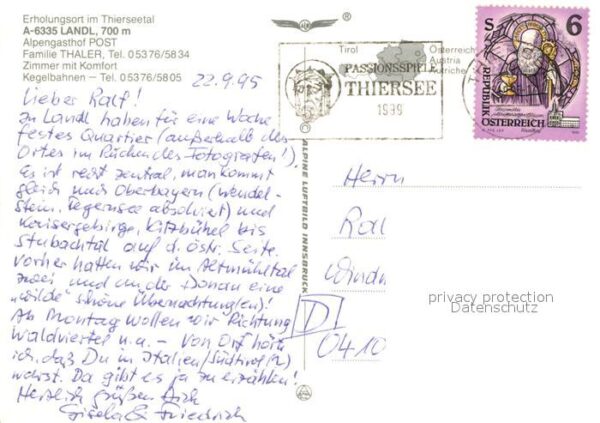 Erholungsort im Thierseetal
A-6335 LANDL, 700 m
Alpengasthof POST
Familie THALER, Tel. 05376/5834
Zimmer mit Komfort
Kegelbahnen – Tel. 05376/5805
22.9.95
Lieber Ralf!
In Landl haben für eine Woche
festes Quartier (außerhalb des
Ortes im Rücken des Fotografen!).
Es ist recht zentral, man kommt
gleich nach Oberbayern (Wendel-
stein, Tegernsee absolviert) und
Kaisergebirge, Kitzbühel bis
Stubachtal auf d. östr. Seite.
Vorher hatten wir im Altmühltal
zwei und an der Donau eine
„wilde" schöne Übernachtung(en)!
Ab Montag wollen wir Richtung
Waldviertel u.a. – Von Ort hörte
ich, daß Du in Italien/Südtirol(?)
warst. Da gibt es ja zu erzählen!
Herzlich grüßen Dich
Gisela & Friedrich
ALPINE LUFTBILD INNSBRUCK
Tirol
Österreich
Austria
Autriche
PASSIONSSPIELE
THIERSEE
S 6
REPUBLIK
ÖSTERREICH
Herrn
Ral
Windm
D
0410
privacy protection
Datenschutz